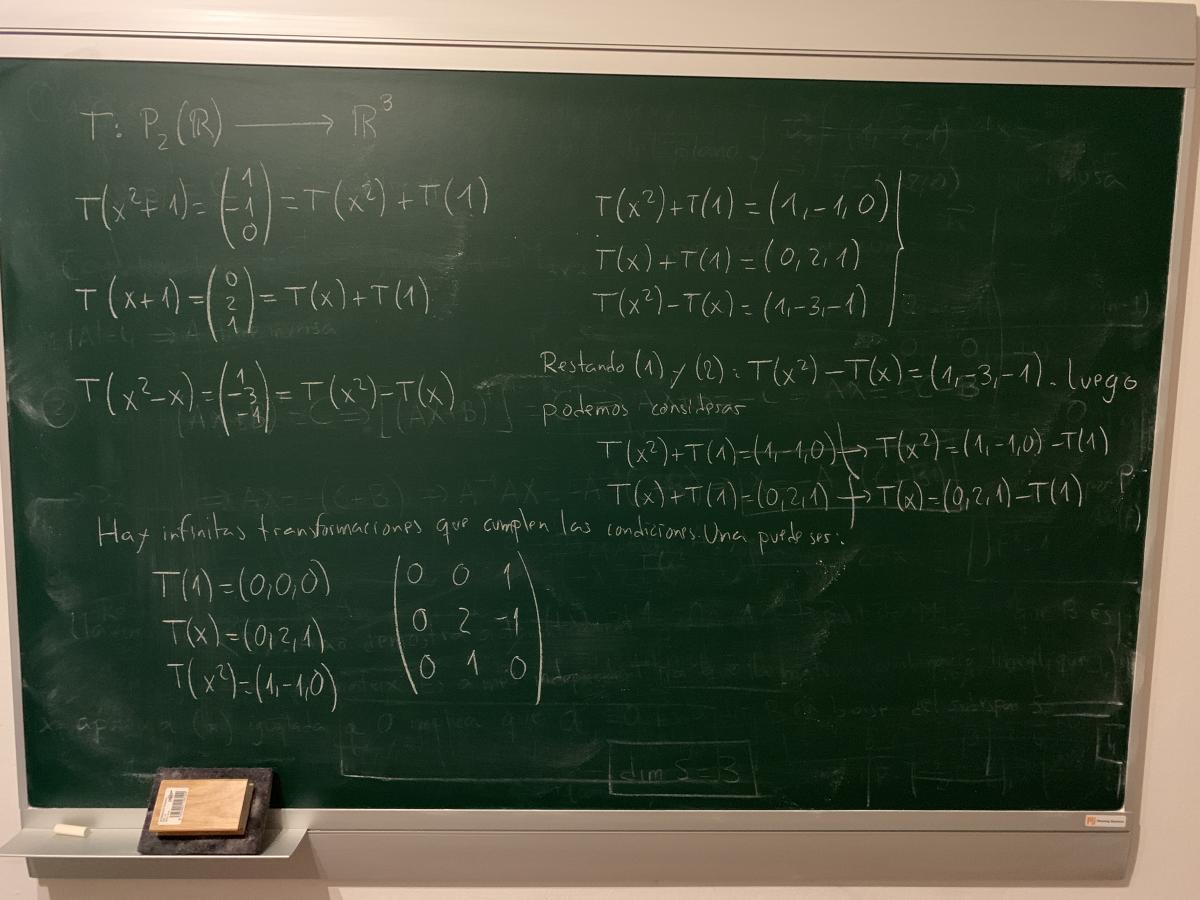 T: P₂(ℝ) ⟶ ℝ³
T(x²+1)=(1 -1 0)=T(x²)+T(1)
T(x+1)=(0 2 1)=T(x)+T(1)
T(x²-x)=(1 -3 -1)=T(x²)-T(x)
T(x²)+T(1)=(1,-1,0)
T(x)+T(1)=(0,2,1)
T(x²)-T(x)=(1,-3,-1)
Restando (1) y (2): T(x²)-T(x)=(1,-3,-1). Luego
podemos considerar
T(x²)+T(1)=(1,-1,0) → T(x²)=(1,-1,0)-T(1)
T(x)+T(1)=(0,2,1) → T(x)=(0,2,1)-T(1)
Hay infinitas transformaciones que cumplen las condiciones. Una puede ser:
T(1)=(0,0,0)
T(x)=(0,2,1)
T(x²)=(1,-1,0)
0 0 1
0 2 -1
0 1 0
dim S = 3